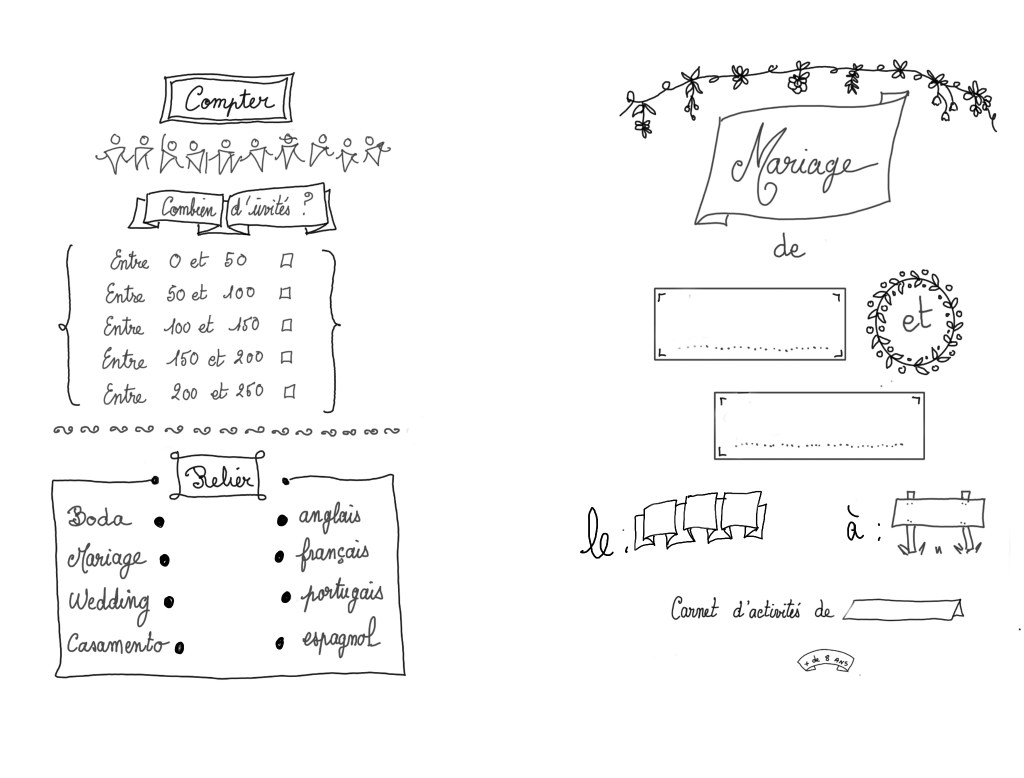 Compter
Combien d'invités ?
Entre 0 et 50
Entre 50 et 100
Entre 100 et 150
Entre 150 et 200
Entre 200 et 250
Relier
Boda anglais
Mariage français
Wedding portugais
Casamento espagnol
Mariage
de
et
le : à :
Carnet d'activités de
+ de 8 ANS